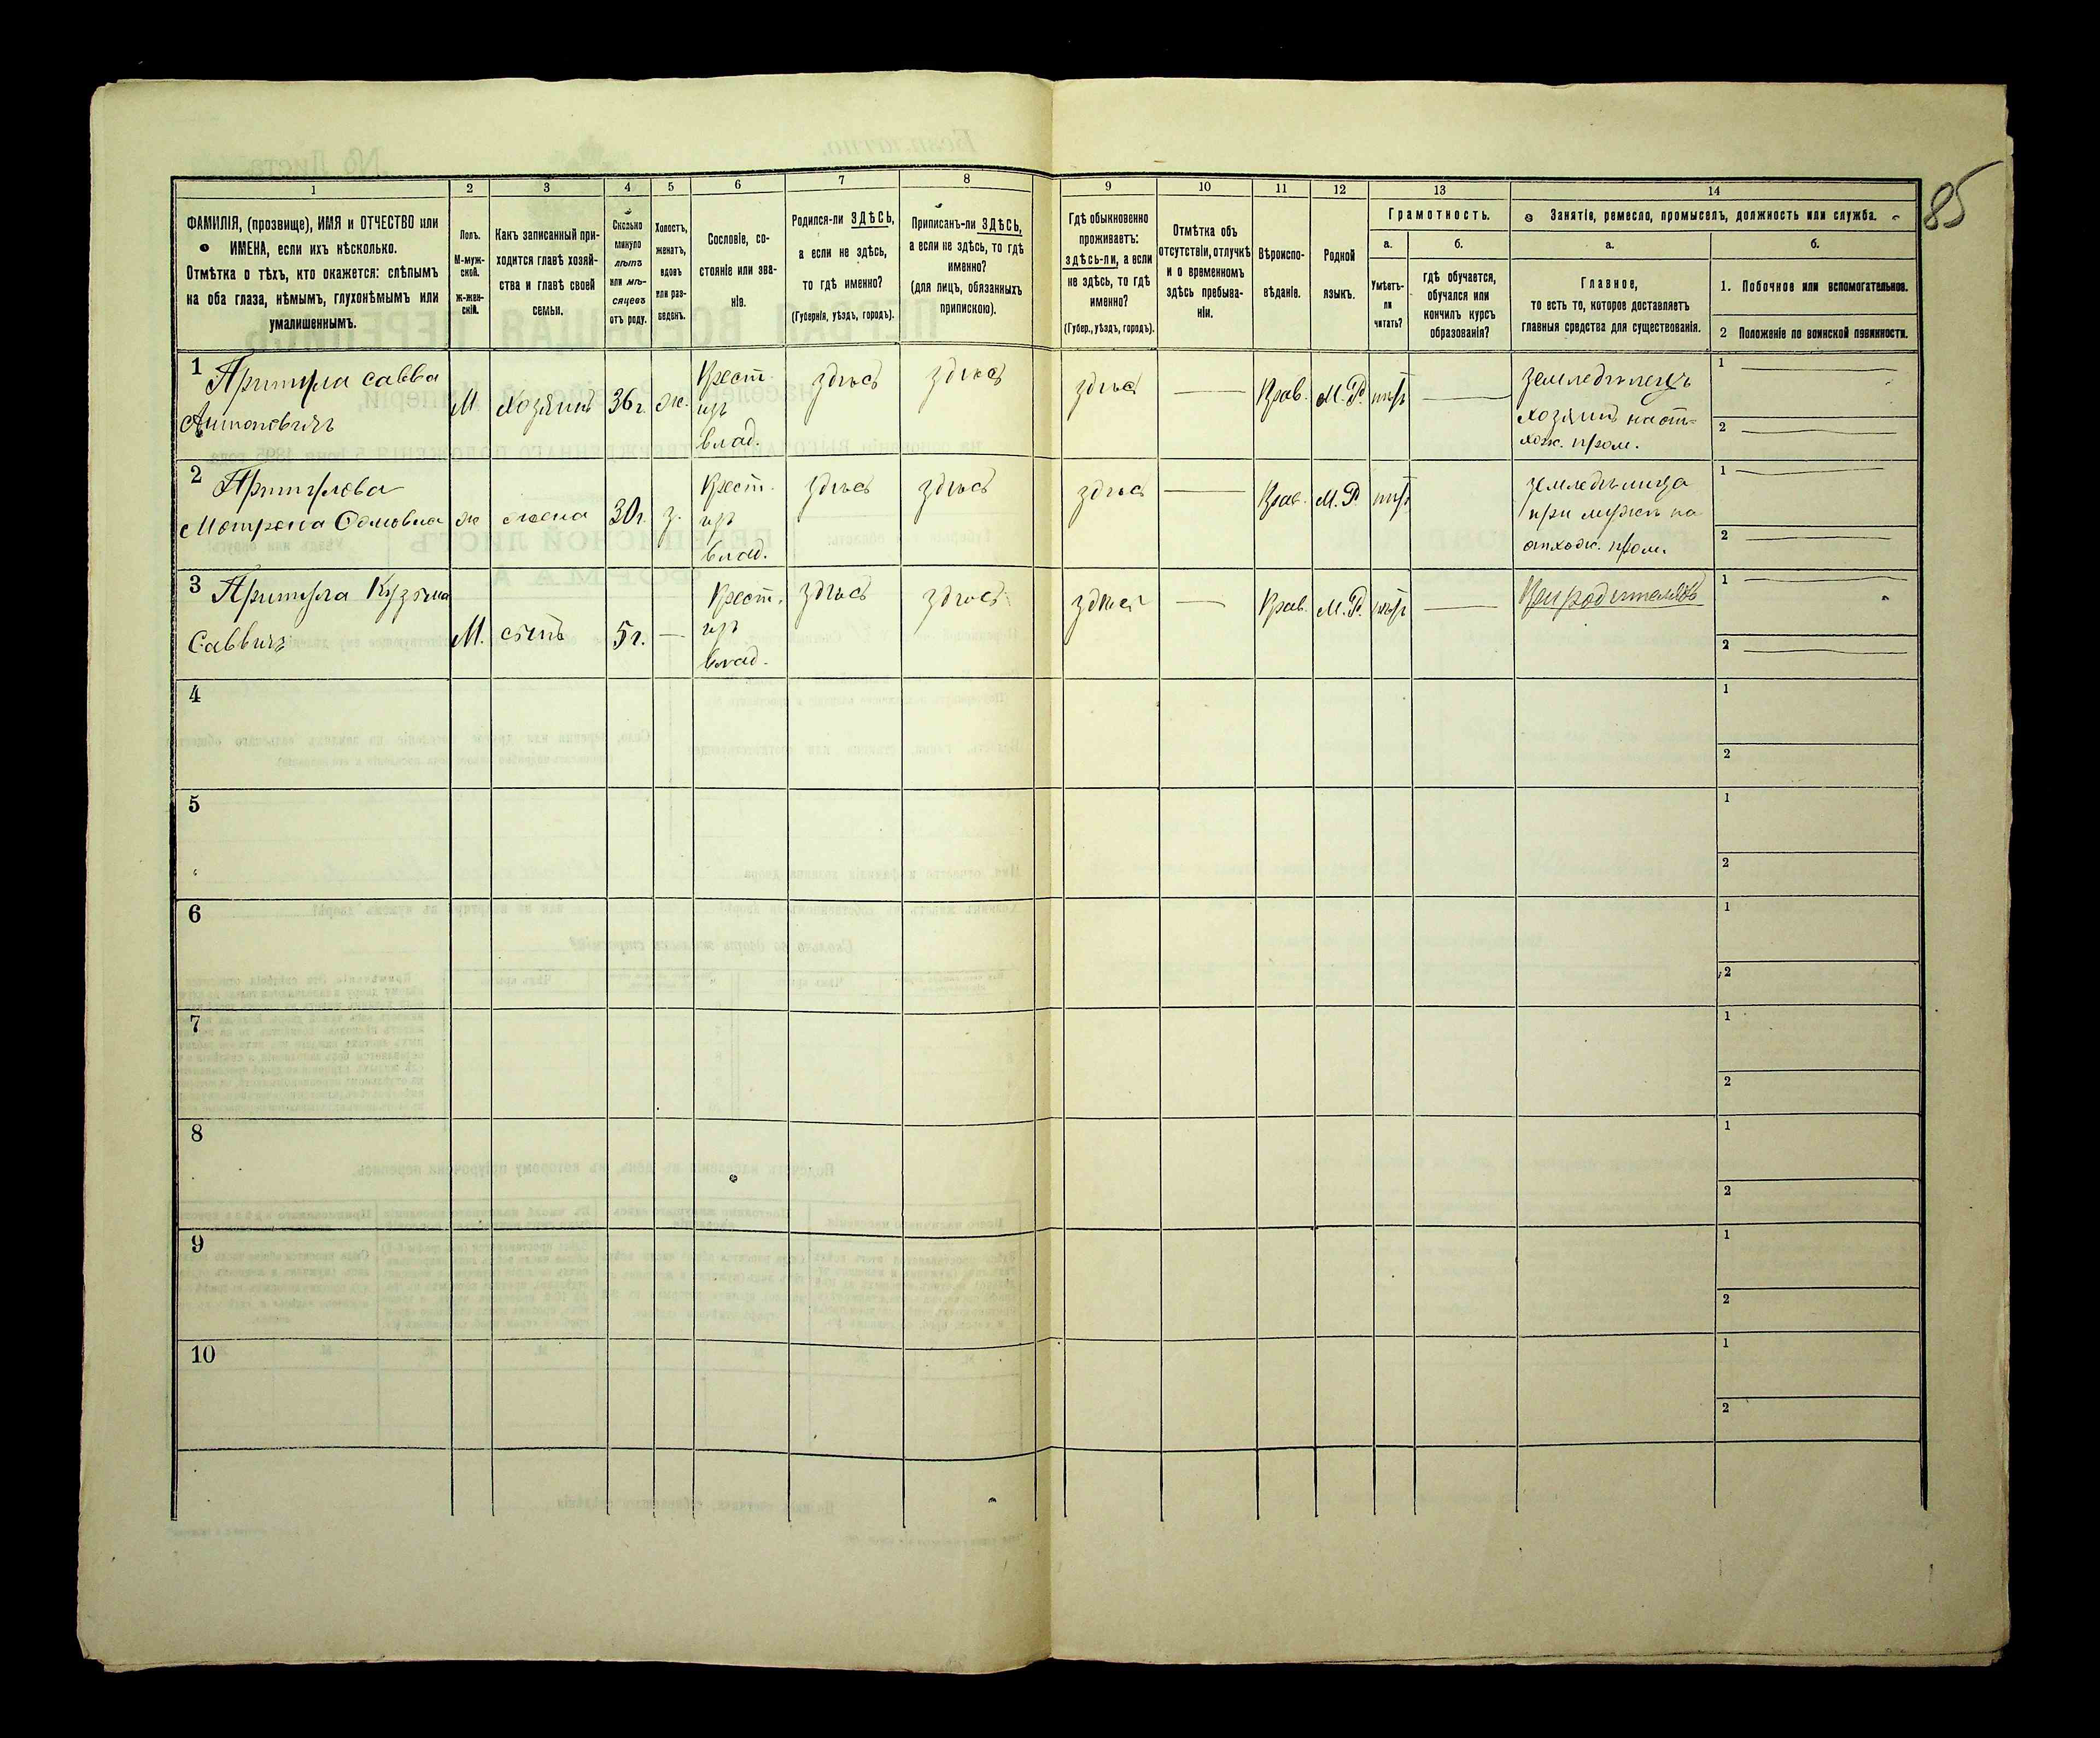 85
1
2
3
4
5
6
7
8
9
10
11
12
13
14
ФАМИЛІЯ, (прозвище), ИМЯ и ОТЧЕСТВО или
ИМЕНА, если ихъ нѣсколько.
Отмѣтка о тѣхъ, кто окажется: слѣпымъ
на оба глаза, нѣмымъ, глухонѣмымъ или
умалишеннымъ.
Полъ.
М-муж-
ской.
ж-жен-
скій.
Какъ записанный при-
ходится главѣ хозяй-
ства и главѣ своей
семьи.
Сколько
минуло
лѣтъ
или мѣ-
сяцевъ
отъ роду.
Холостъ,
женатъ,
вдовъ
или раз-
веденъ.
Сословіе, со-
стояніе или зва-
ніе.
Родился-ли ЗДѢСЬ,
а если не здѣсь,
то гдѣ именно?
(Губернія, уѣздъ, городъ).
Приписанъ-ли ЗДѢСЬ,
а если не здѣсь, то гдѣ
именно?
(для лицъ, обязанныхъ
припискою).
Гдѣ обыкновенно
проживаетъ:
здѣсь-ли, а если
не здѣсь, то гдѣ
именно?
(Губер., уѣздъ, городъ).
Отмѣтка объ
отсутствіи, отлучкѣ
и о временномъ
здѣсь пребыва-
ніи.
Вѣроиспо-
вѣданіе.
Родной
языкъ.
Грамотность.
а.
Умѣетъ-
ли
читать?
б.
гдѣ обучается,
обучался или
кончилъ курсъ
образованія?
Занятіе, ремесло, промыселъ, должность или служба.
а.
Главное,
то есть то, которое доставляетъ
главныя средства для существованія.
б.
1. Побочное или вспомогательное.
2 Положеніе по воинской повинности.
1 Притула Савва
Антоновичъ
М
хозяинъ
36 г.
ж.
Крест.
изъ
влад.
здѣсь
здѣсь
здѣсь
Прав.
М. Р.
нѣтъ
земледѣлецъ
хозяинъ на от-
хож. пром.
1
2
2 Притулова
Мотрона
ж
жена
30 г.
з.
Крест.
изъ
влад.
здѣсь
здѣсь
здѣсь
Прав.
М. Р.
нѣтъ
при мужѣ на
отхож. пром.
1
2
3 Притула Кузьма
Саввичъ
М.
сынъ
5 г.
Крест.
изъ
влад.
здѣсь
здѣсь
здѣсь
Прав.
М. Р.
нѣтъ
При родителяхъ
1
2
4
1
2
5
1
2
6
1
2
7
1
2
8
1
2
9
1
2
10
1
2